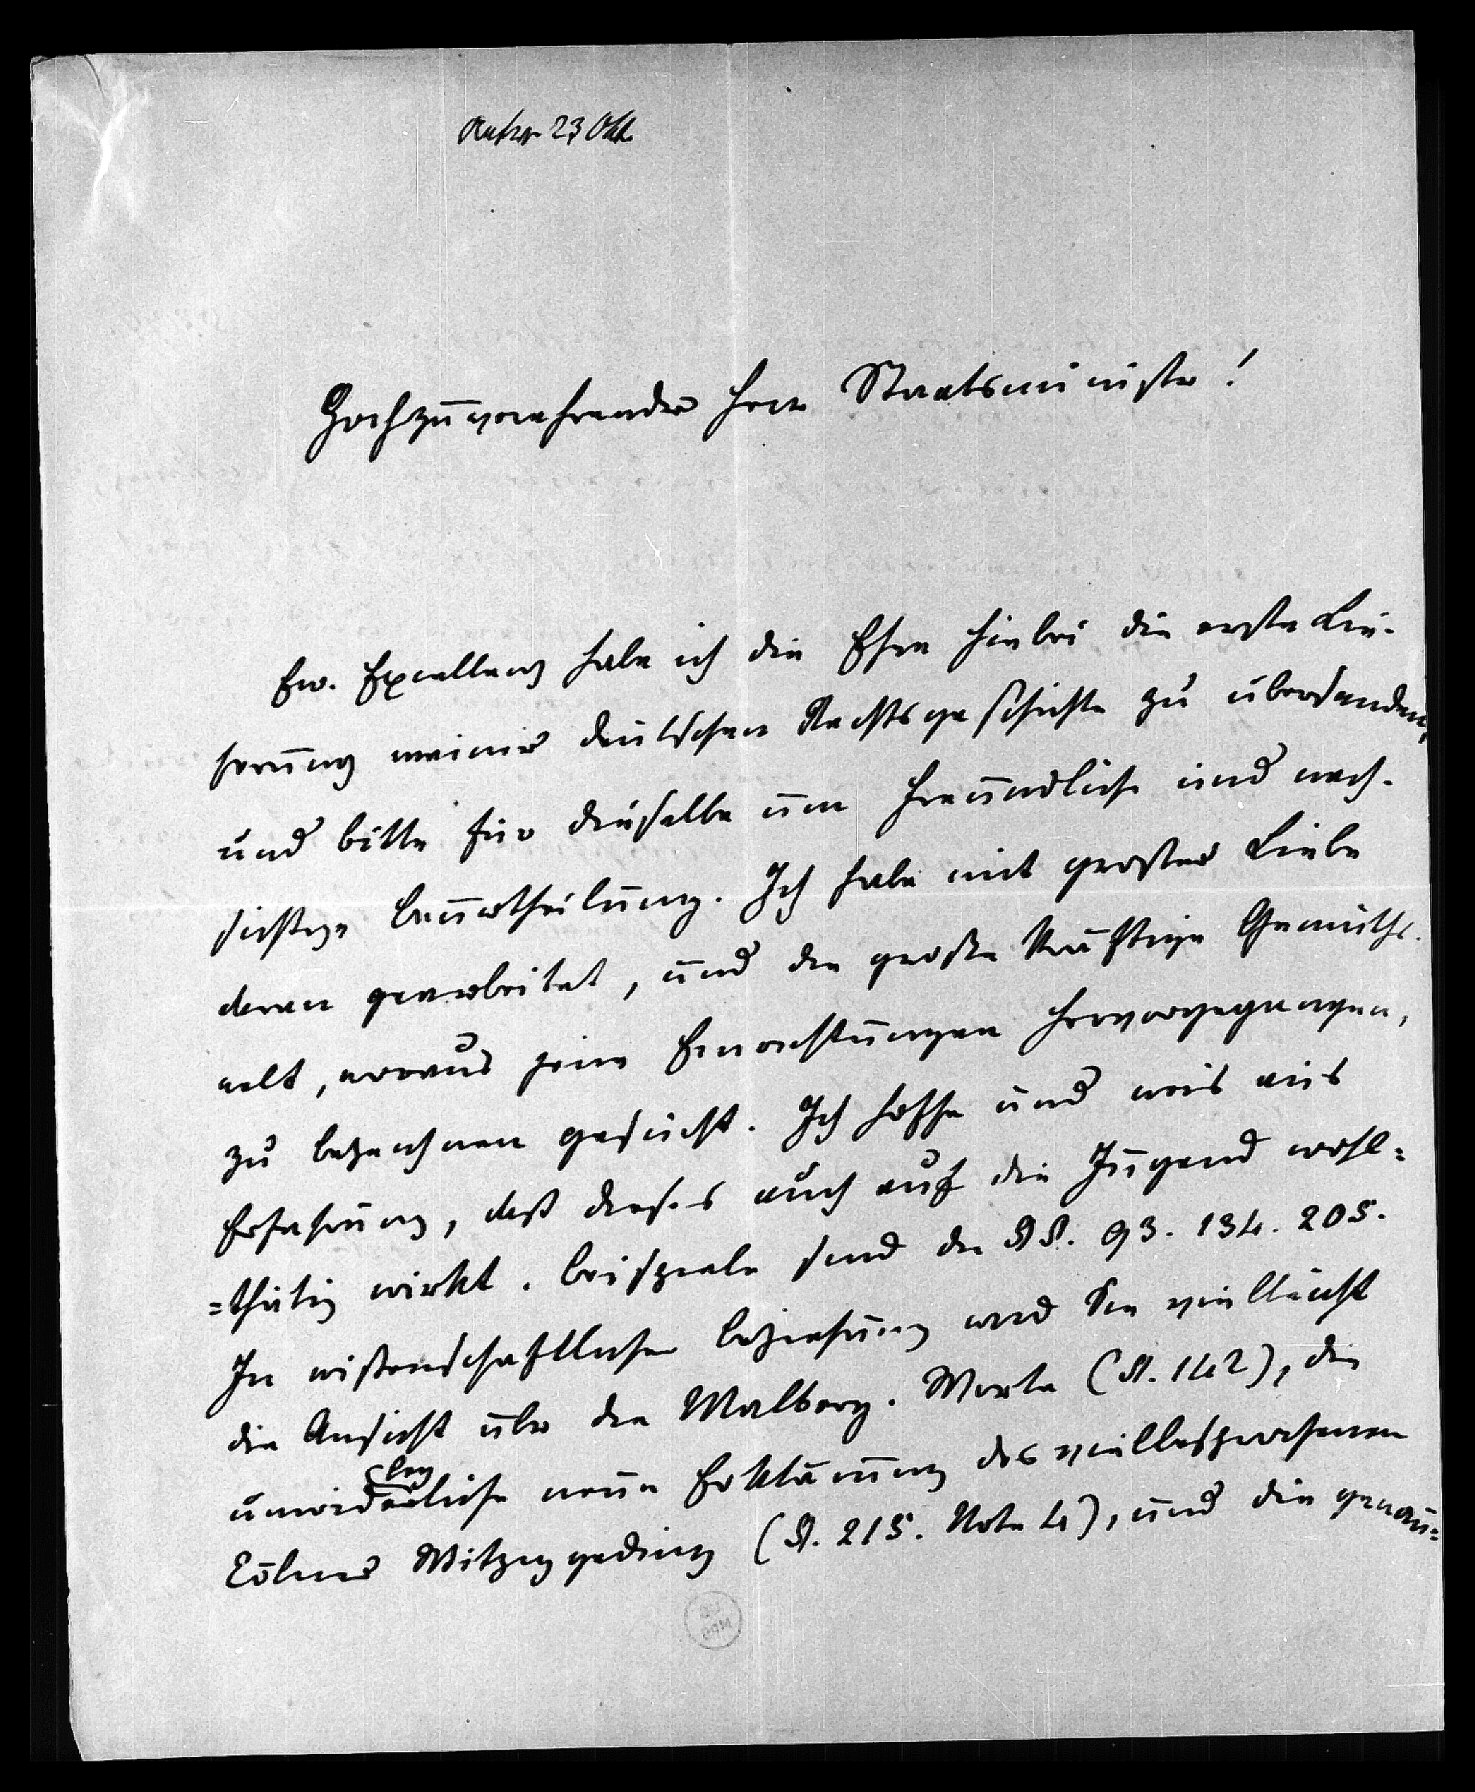 Antw. 23 Okt.
Hochzuverehrender Herr Staatsminister!
Ew. Excellenz habe ich die Ehre hiebei die erste Lie-
ferung meiner deutschen Rechtsgeschichte zu übersenden,
und bitte für dieselbe um freundliche und nach-
sichtige beurtheilung. Ich habe mit großer Liebe
daran gearbeitet, und die große kräftige Gemüths-
welt, woraus jene Einrichtungen hervorgegangen,
zu bezeichnen gesucht. Ich hoffe und weis aus
Erfahrung, daß dieses auch auf die Jugend wohl=
=thätig wirkt. beispiele sind die SS. 93. 134. 205.
In wißenschaftlicher beziehung wird Sie vielleicht
die Ansicht über die Malberg. Worte (S. 142), die
unwiderlegliche neue Erklärung des vielbesprochenen
Cölner Witzeggeding (S. 215. Note 4), und die genau=